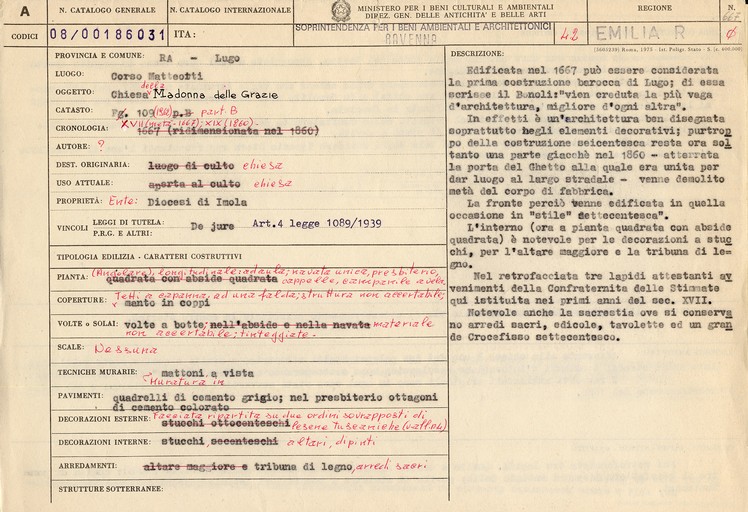 A
N. CATALOGO GENERALE
N. CATALOGO INTERNAZIONALE
MINISTERO PER I BENI CULTURALI E AMBIENTALI
DIREZ. GEN. DELLE ANTICHITA' E BELLE ARTI
REGIONE
N.
667
CODICI
08/00186031
ITA:
SOPRINTENDENZA PER I BENI AMBIENTALI E ARCHITETTONICI
RAVENNA
42
EMILIA R
(3605239) Roma, 1975 - Ist. Poligr. Stato - S. (c. 600.000)
PROVINCIA E COMUNE: RA - Lugo
LUOGO: Corso Matteotti
della
OGGETTO: Chiesa Madonna delle Grazie
CATASTO: Fg. 109 (1962) p.B part. B
XVII (1667); XIX (1860) -
CRONOLOGIA: 1667 (ridimensionata nel 1860)
AUTORE: ?
DEST. ORIGINARIA: luogo di culto chiesa
USO ATTUALE: aperta al culto chiesa
PROPRIETÀ: Ente: Diocesi di Imola
VINCOLI
LEGGI DI TUTELA: De jure Art.4 legge 1089/1939
P.R.G. E ALTRI:
TIPOLOGIA EDILIZIA - CARATTERI COSTRUTTIVI
(Angolare), longitudinale; navata unica, presbiterio,
PIANTA: quadrata con abside quadrata cappelle,
Tetti a capanna, ad una falda; struttura non accertabile;
COPERTURE: manto in coppi
VOLTE o SOLAI: volte a botte; nell'abside e nella navata materiale
non accertabile; tinteggiate -
SCALE: Nessuna
TECNICHE MURARIE: mattoni a vista
Muratura in
PAVIMENTI: quadrelli di cemento grigio; nel presbiterio ottagoni
di cemento colorato
Facciata ripartita su due ordini sovrapposti di
DECORAZIONI ESTERNE: stucchi ottocenteschi lesene tuscaniche (v. all. n. 4)
DECORAZIONI INTERNE: stucchi, secenteschi altari, dipinti
ARREDAMENTI: altare maggiore e tribuna di legno, arredi sacri
STRUTTURE SOTTERRANEE:
DESCRIZIONE:
Edificata nel 1667 può essere considerata
la prima costruzione barocca di Lugo; di essa
scrisse il Bonoli:"vien creduta la più vaga
d'architettura, migliore d'ogni altra".
In effetti è un'architettura ben disegnata
soprattutto negli elementi decorativi; purtrop
po della costruzione seicentesca resta ora sol
tanto una parte giacchè nel 1860 - atterrata
la porta del Ghetto alla quale era unita per
dar luogo al largo stradale - venne demolito
metà del corpo di fabbrica.
La fronte perciò venne edificata in quella
occasione in "stile" settecentesca".
L'interno (ora a pianta quadrata con abside
quadrata) è notevole per le decorazioni a stuc
chi, per l'altare maggiore e la tribuna di le=
gno.
Nel retrofacciata tre lapidi attestanti av
venimenti della Confraternita delle Stimmate
qui istituita nei primi anni del sec. XVII.
Notevole anche la sacrestia ove si conserva
no arredi sacri, edicole, tavolette ed un gran
de Crocefisso settecentesco.